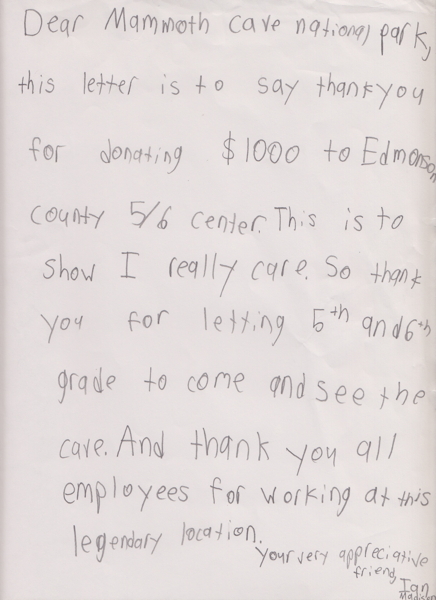 Dear Mammoth cave national park,
this letter is to say thankyou
for donating $1000 to Edmonson
county 5/6 center. This is to
show I really care. So thank
you for letting 5th and 6th
grade to come and see the
cave. And thank you all
employees for working at this
legendary location.
Your very appreciative
friend,
Ian
Madison